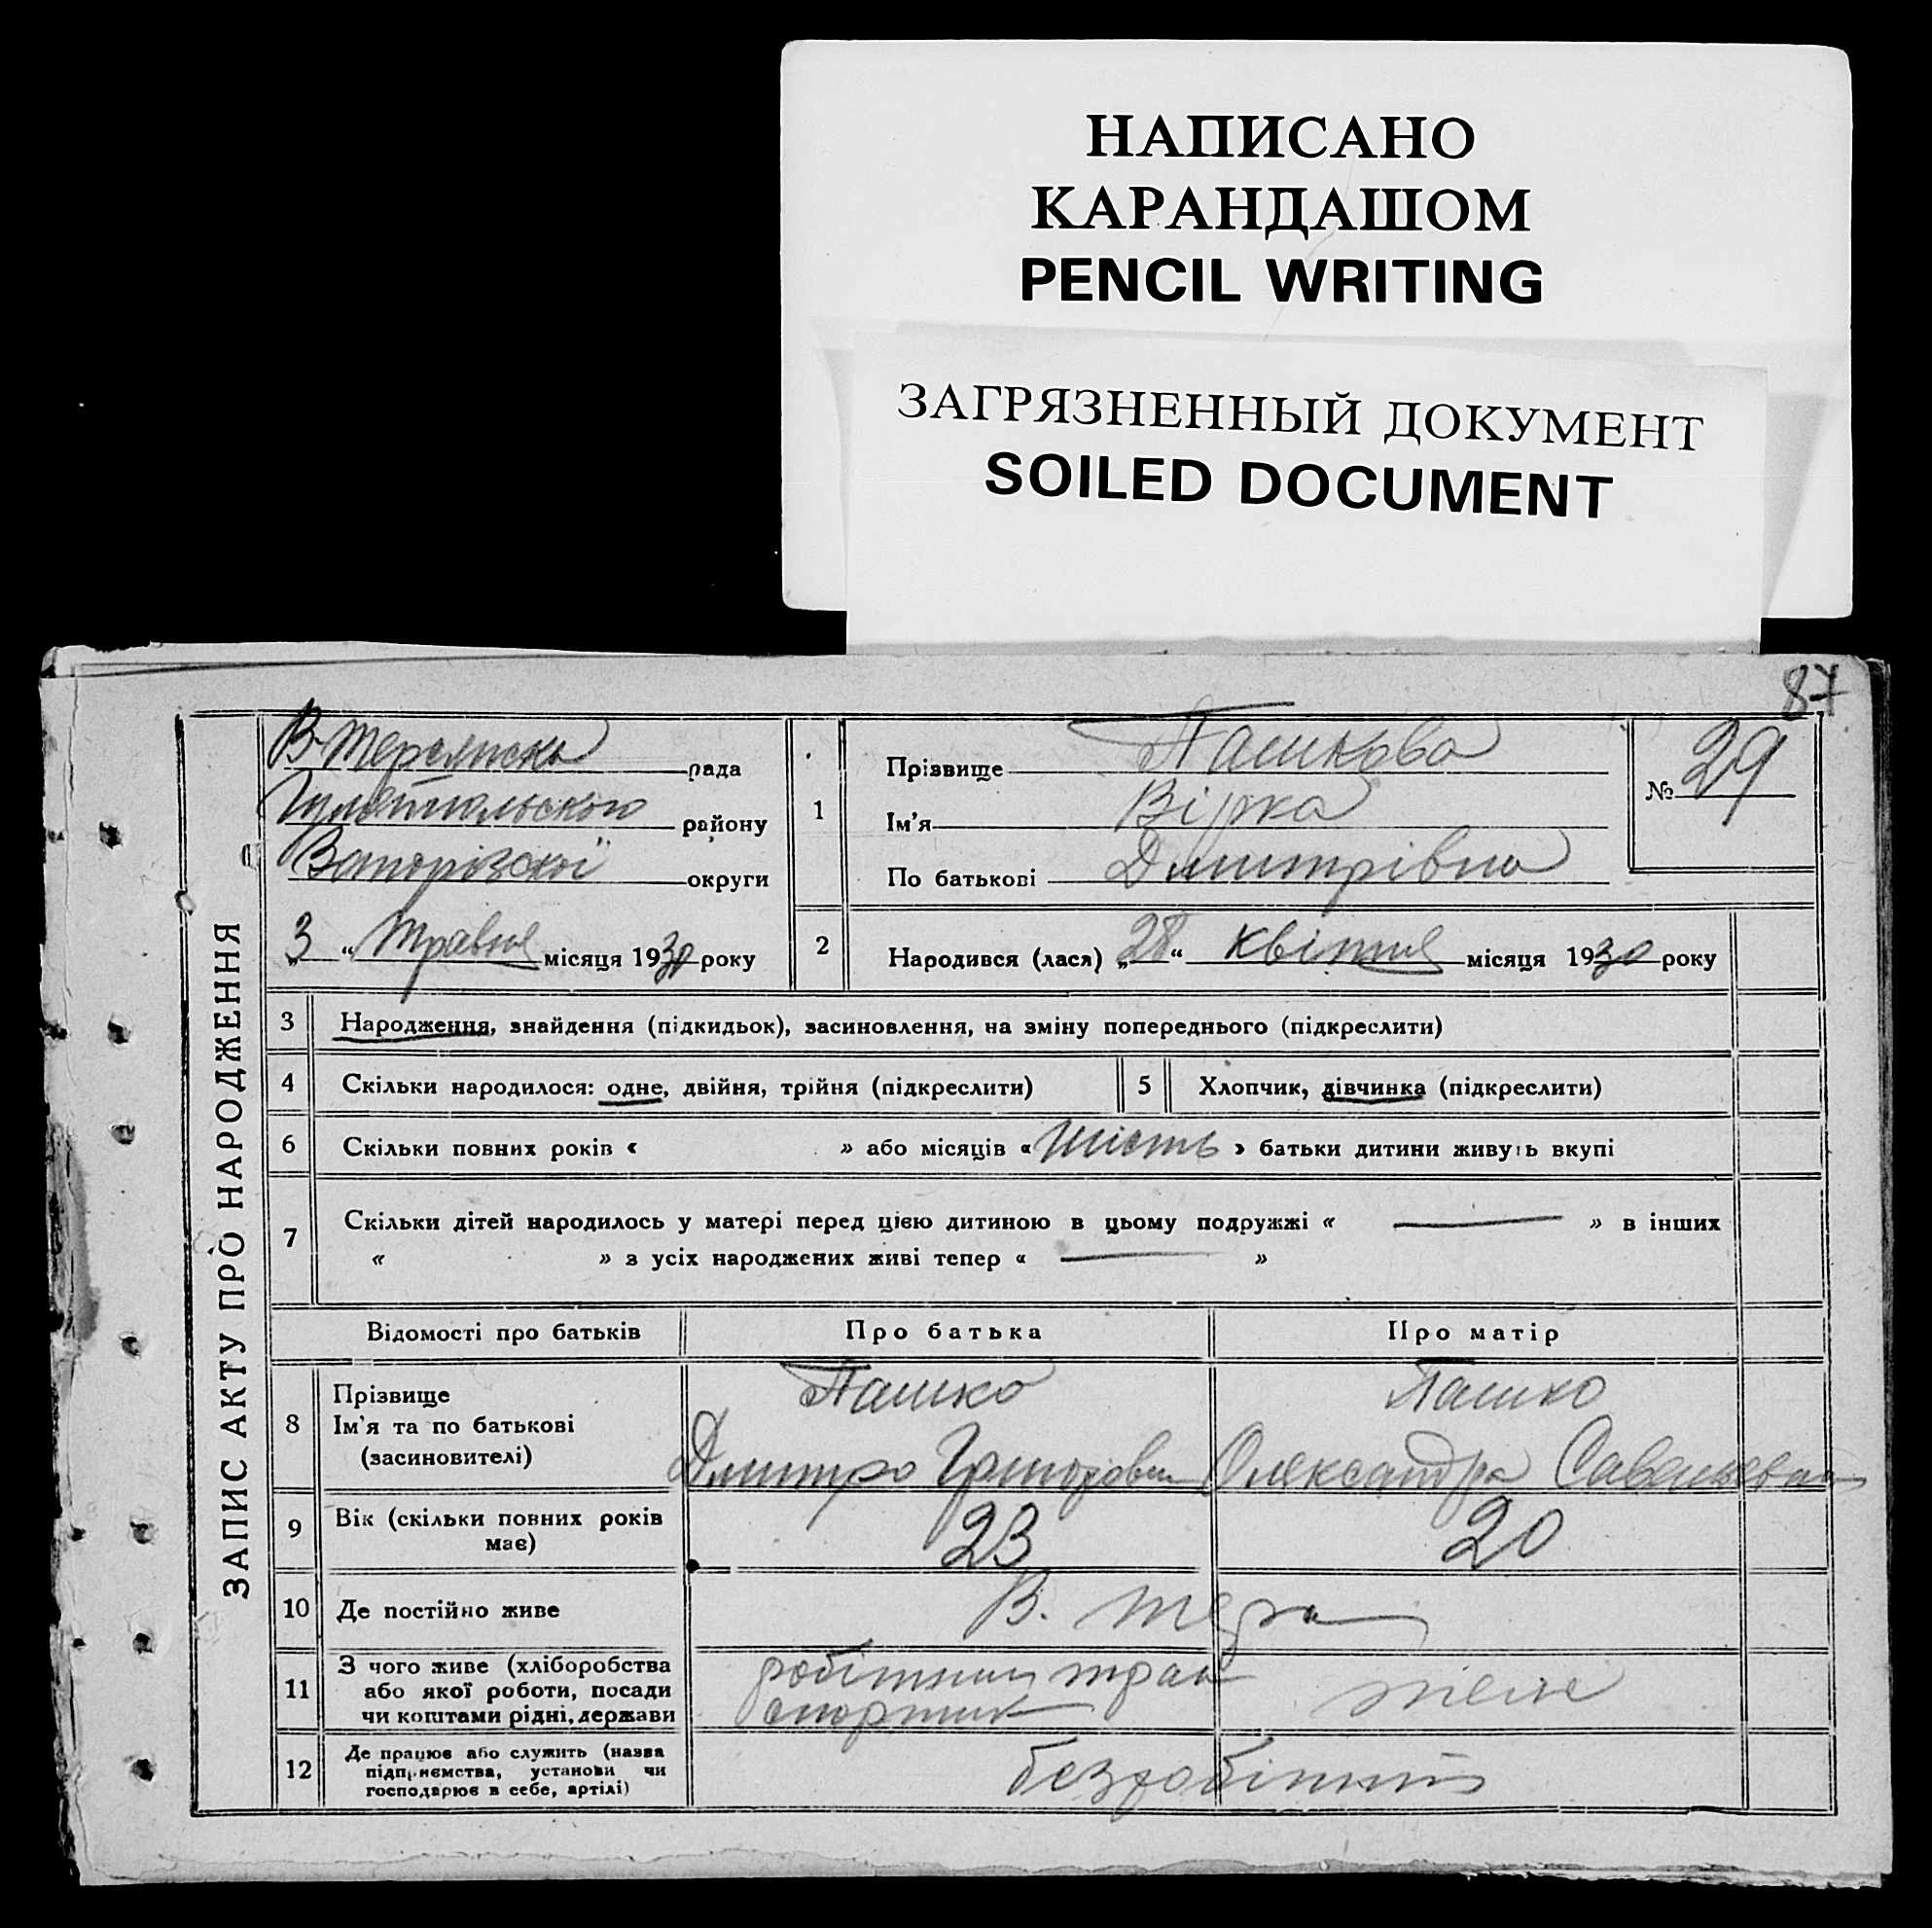 НАПИСАНО
КАРАНДАШОМ
PENCIL WRITING
ЗАГРЯЗНЕННЫЙ ДОКУМЕНТ
SOILED DOCUMENT
87
ЗАПИС АКТУ ПРО НАРОДЖЕННЯ
рада
району
Запорізской округи
„3“ травня місяця 1930 року
1
Прізвище Пашкова
Ім'я Вірка
По батькові Дмитрівна
№ 29
2 Народився (лася) „28“ квітня місяця 1930 року
3 Народження, знайдення (підкидьок), засиновлення, на зміну попереднього (підкреслити)
4 Скільки народилося: одне, двійня, трійня (підкреслити)
5 Хлопчик, дівчинка (підкреслити)
6 Скільки повних років « » або місяців « шість » батьки дитини живуть вкупі
7 Скільки дітей народилось у матері перед цією дитиною в цьому подружжі « — » в інших
« » з усіх народжених живі тепер « — »
Відомості про батьків Про батька Про матір
8 Прізвище
Ім'я та по батькові
(засиновителі)
Пашко
Дмитро Григорович
Пашко
Олександра
9 Вік (скільки повних років
має)
23
20
10 Де постійно живе
В. Тера
11 З чого живе (хліборобства
або якої роботи, посади
чи коштами рідні, держави
робітник тран
спортник
12 Де працює або служить (назва
підприємства, установи чи
господарює в себе, артілі)
безробітний